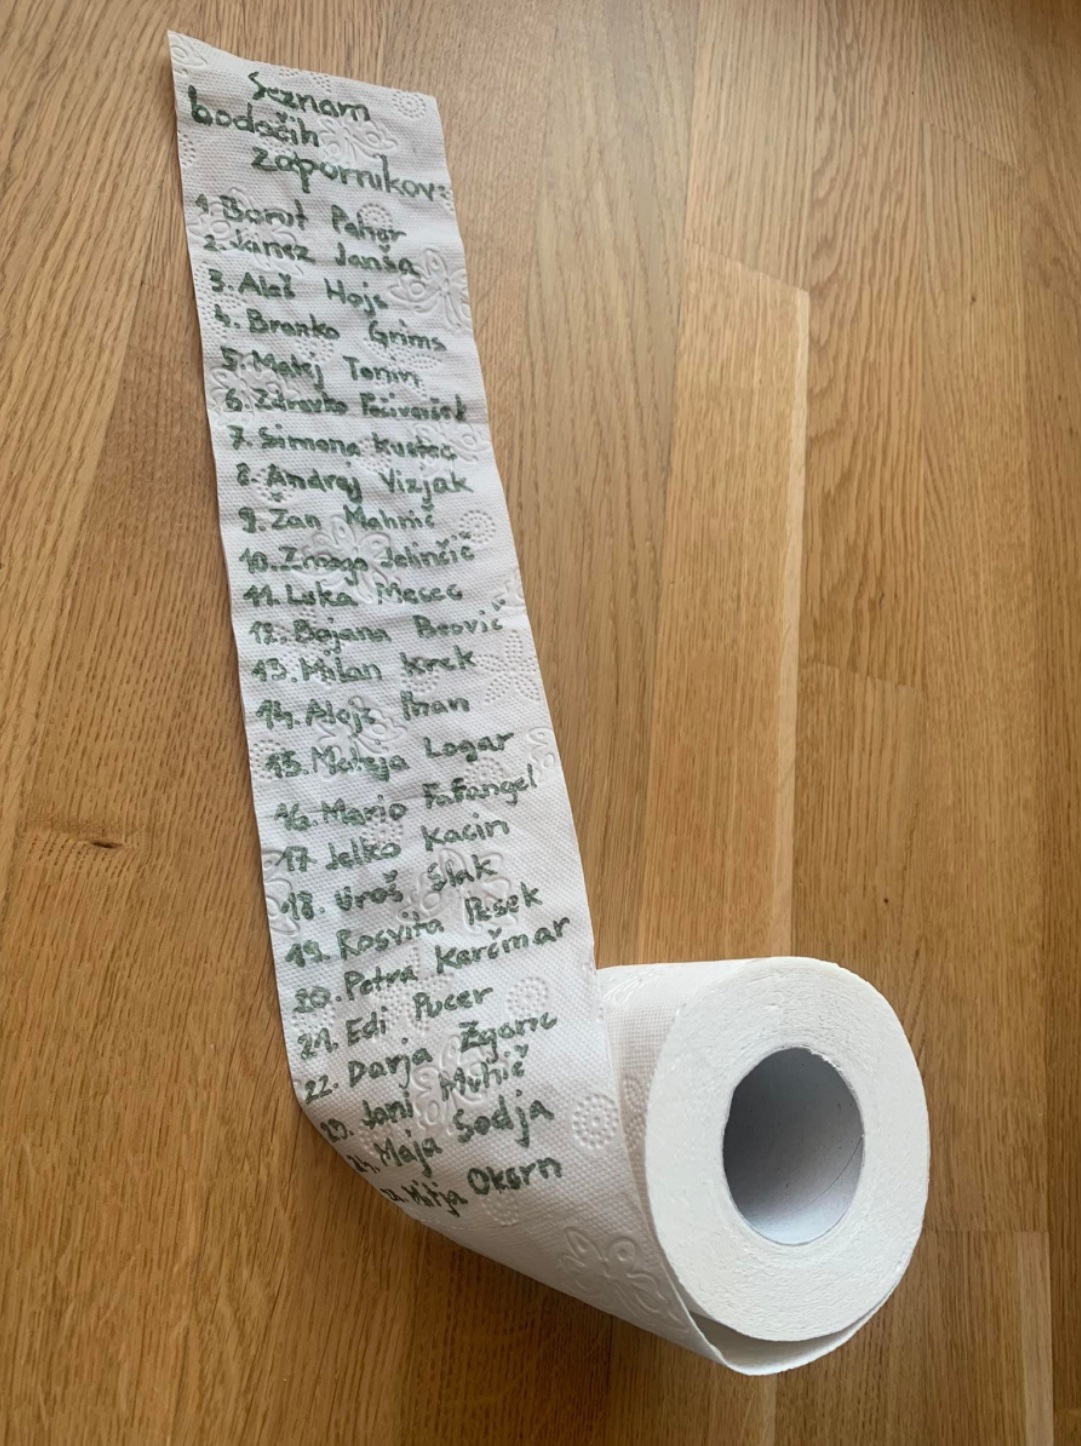 Seznam
bodočih
zapornikov:
1. Borut Pahor
2. Janez Janša
3. Aleš Hojs
4. Branko Grims
5. Matej Tonin
6. Zdravko Počivavšek
7. Simona Kustec
8. Andrej Vizjak
9. Žan Mahnič
10. Zmago Jelinčič
11. Luka Mesec
12. Bojana Beović
13. Milan Krek
14. Alojz Ihan
15. Mateja Logar
16. Mario Fafangel
17 Jelko Kacin
18. Uroš Slak
19. Rosvita Pesek
20. Petra Kerčmar
21. Edi Pucer
22. Darja Zgonc
23. Jani Muhič
24. Maja Sodja
Mitja Okorn